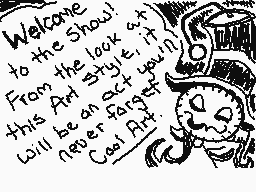 Welcome
to the Show!
From the look at
this Art style, it
will be an act you'll
never forget
Cool Art.